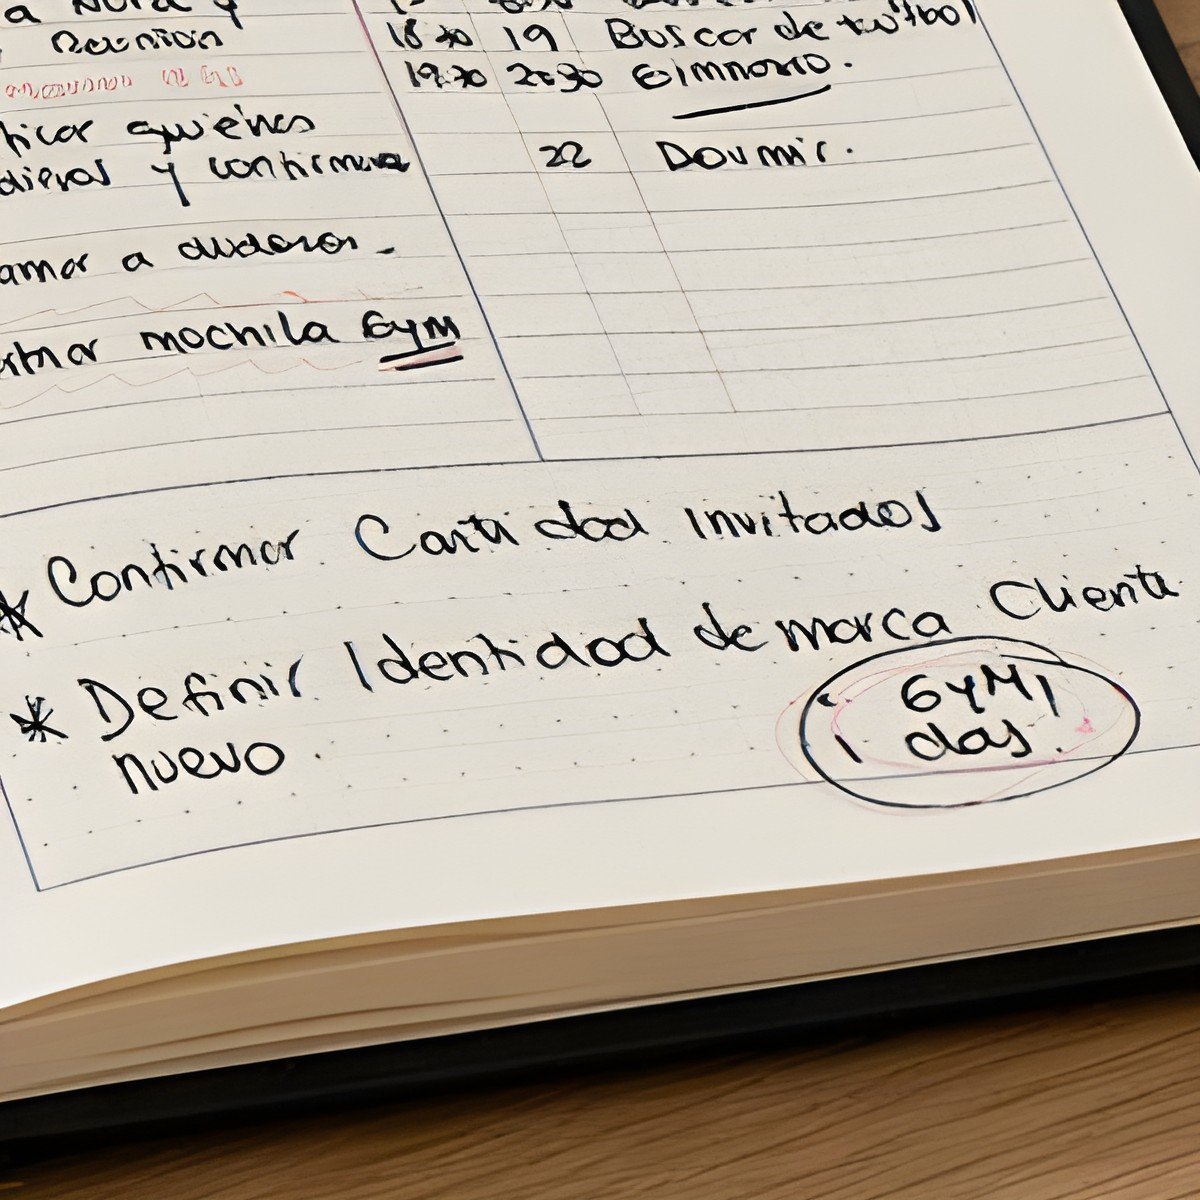 a Nora y
Reunión
ficar quiénes
y confirmar
amar a dudosos.
mochila Gym
18:30 19 Buscar de fútbol
19:30 20:30 Gimnasio.
22 Dormir.
* Confirmar Cantidad invitados
* Definir Identidad de marca Cliente
nuevo.
GYM